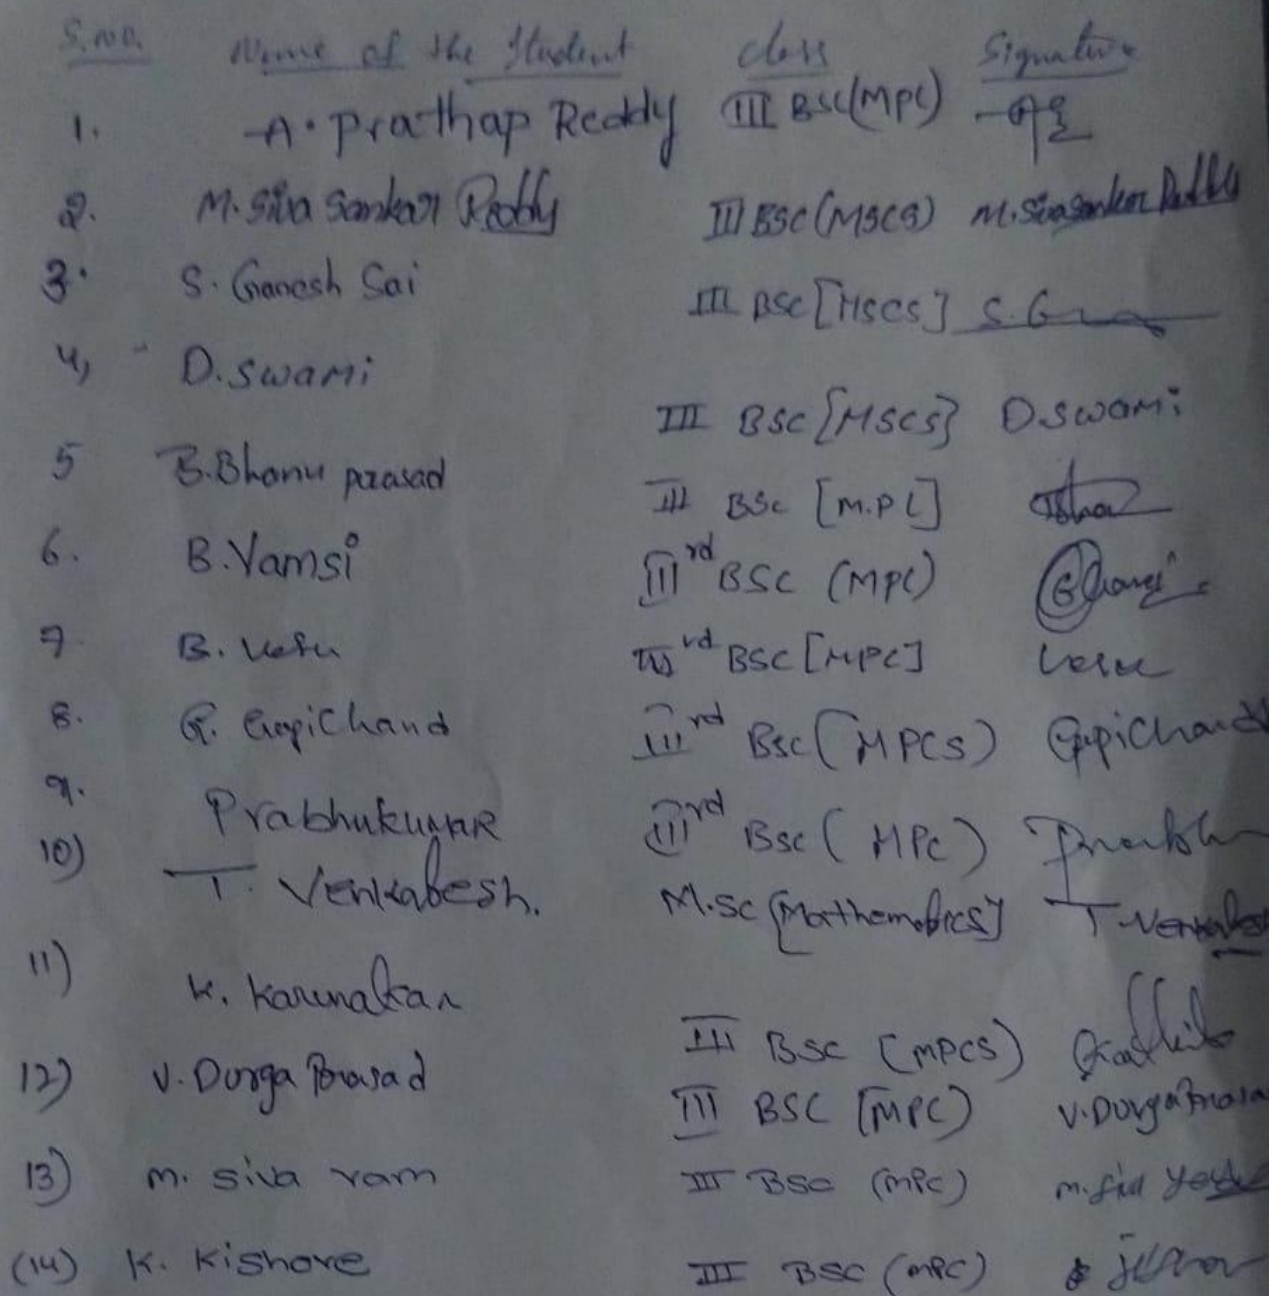 S.no. Name of the Student class Signature
1. A. Prathap Reddy III BSC (MPC)
2. M. Siva Sankar Reddy III BSC (MSCS) M. Siva Sankar Reddy
3. S. Ganesh Sai III BSC [MSCS] S. G
4, D. Swami III BSC [MSCS] D. Swami
5 B. Bhanu prasad III BSC [M.PC]
6. B. Vamsi IIIrd BSC (MPC)
7. B. Vasu IIIrd BSC [MPC] Vasu
8. G. GopiChand IIIrd Bsc (MPCS) GopiChand
9. Prabhukumar IIIrd Bsc (MPC) Prabhu
10) T. Venkatesh. M.SC [Mathematics] T. Venkatesh
11) K. Karunakar III BSC (MPCS)
12) V. Durga Prasad III BSC [MPC) V. Durga Prasa
13) M. Siva ram III BSC (MPC) M. Siva
(14) K. Kishore III BSC (MPC)